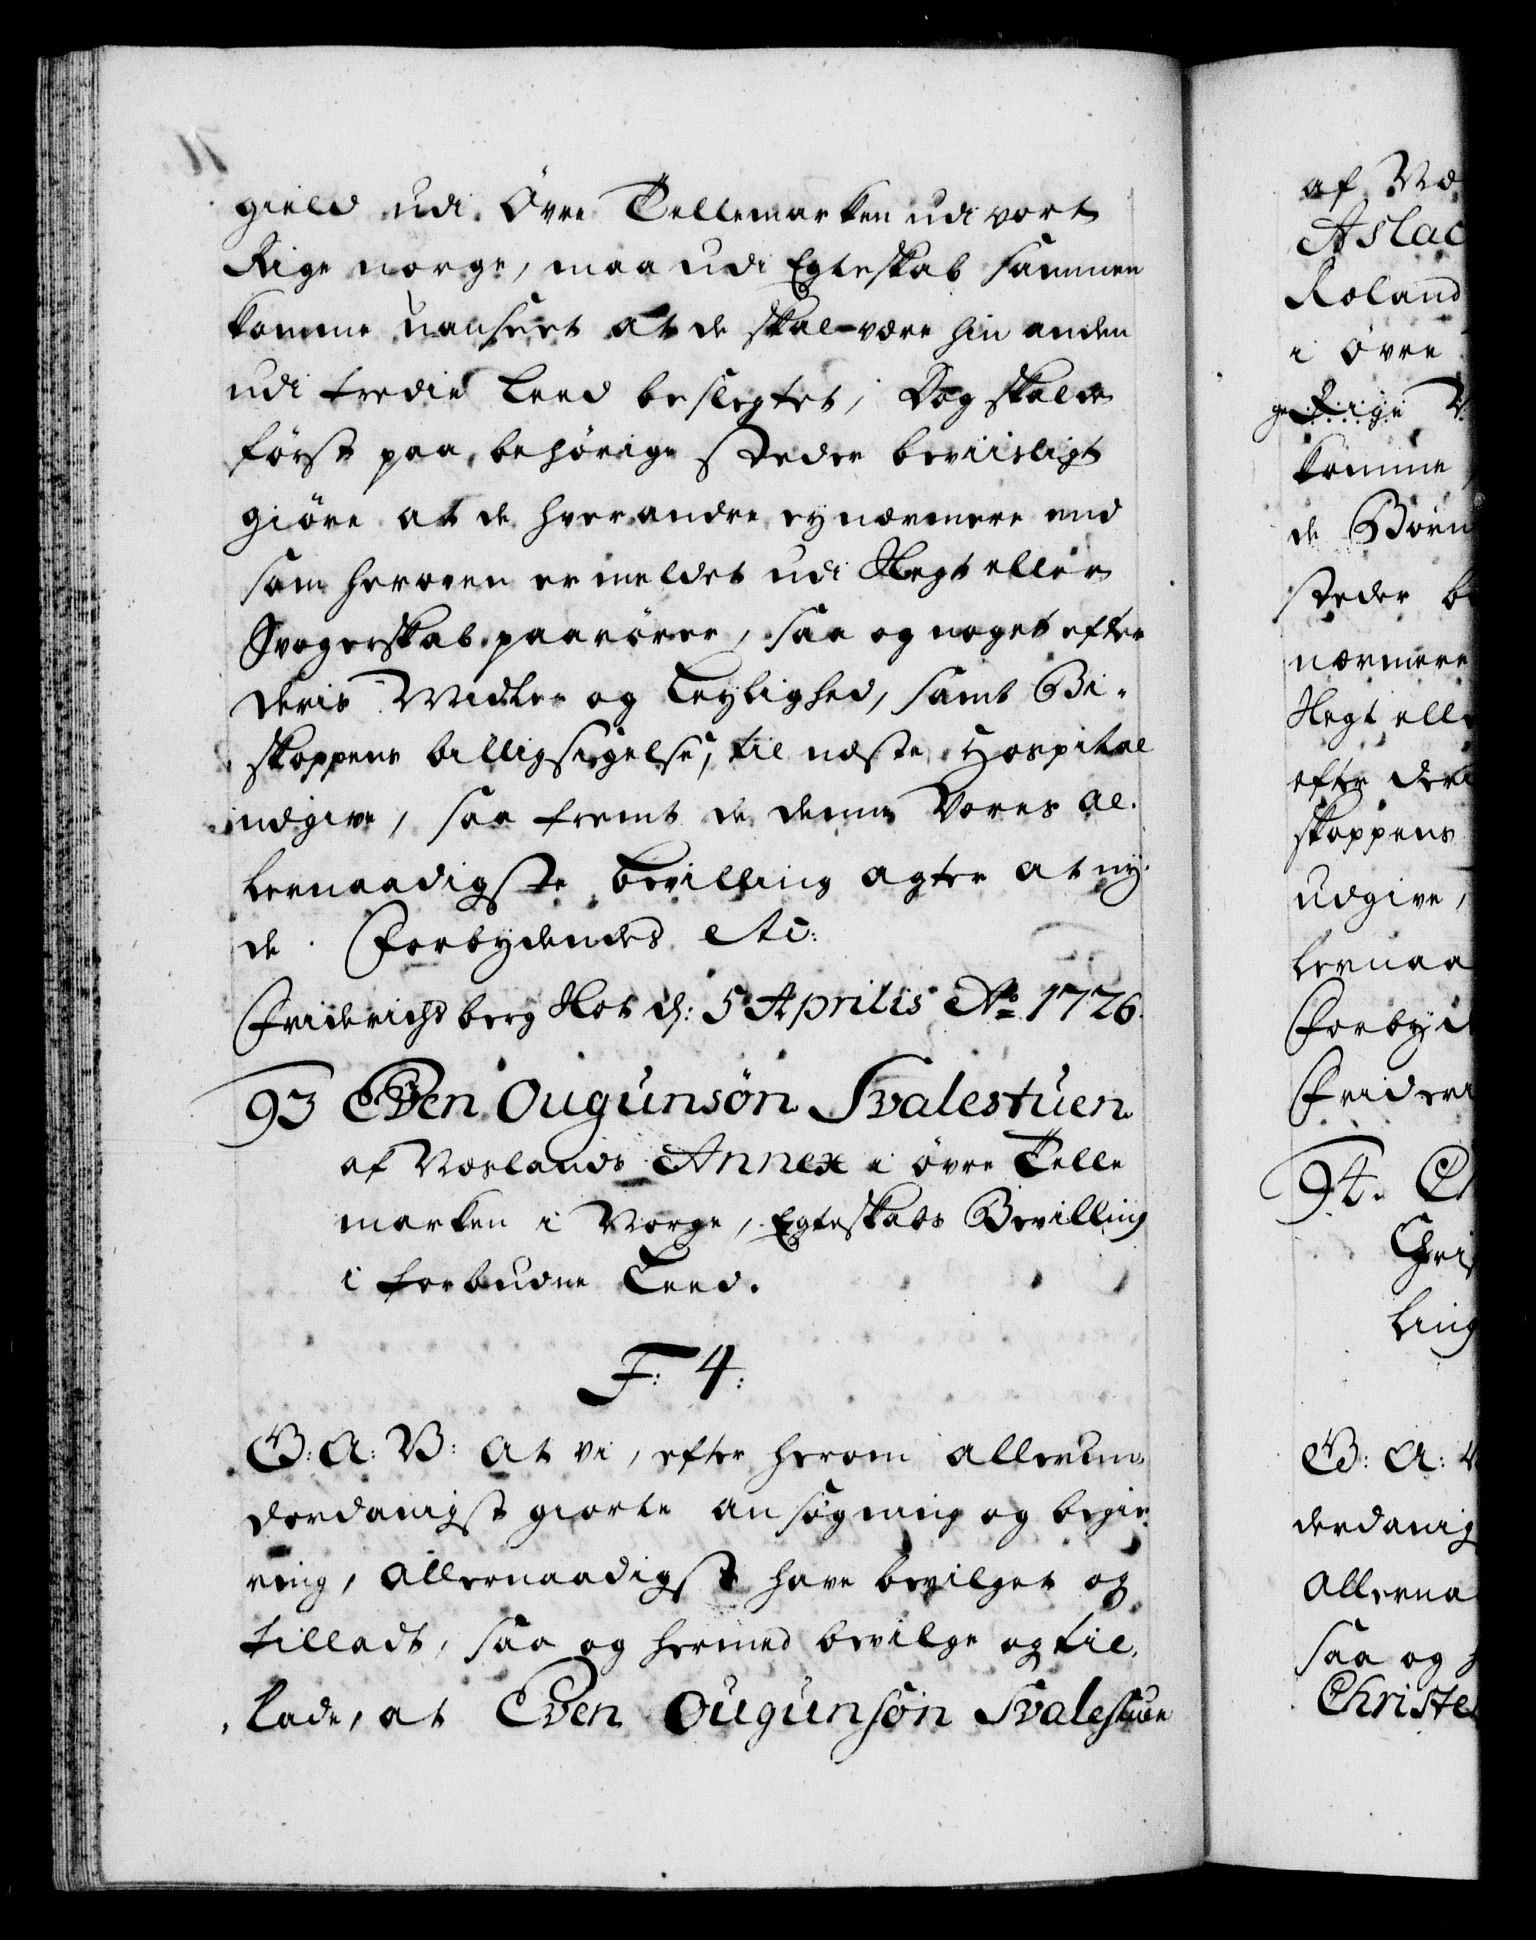 gield udi Øvre Tellemarken udi vort
Rige norge, maa udi Egteskab sammen
komme uanseet at de skal være hin anden
udi tredie Leed beslegtet; Dog skal de
først paa behørige steder beviisligt
giøre at de hverandre ey nærmere end
som heroven er meldet udi Slegt eller
Svogerskab paarører, saa og noget efter
deris Midler og Leylighed, samt Bi-
skoppens billigsigelse, til næste Hospital
udgive, saa fremt de denne Vores al-
lernaadigste bevilling agter at ny-
de. Forbydendes etc:
Friderichsberg Slot d: 5 Aprilis Ao 1726.
93 Even Ougunsøn Svalestuen
af Næslands Annex i øvre Telle
marken i Norge, Egteskabs Bevilling
i forbudne Leed.
F: 4:
G: A: V: At vi, efter herom allerun-
derdanigst giorte ansøgning og begie-
ring, allernaadigst have bevilget og
tilladt, saa og hermed bevilge og til-
lade, at Even Ougunsøn Svalestuen
af Næ
Aslac
Roland
i øvre
Rige N
komme
de Børn
steder be
nærmere
Slegt elle
efter deri
skoppens
udgive,
lernaa
Forbyd
Frideri
94. Ch
Chris
ling
G: A: V
derdanig
allerna
saa og h
Christe